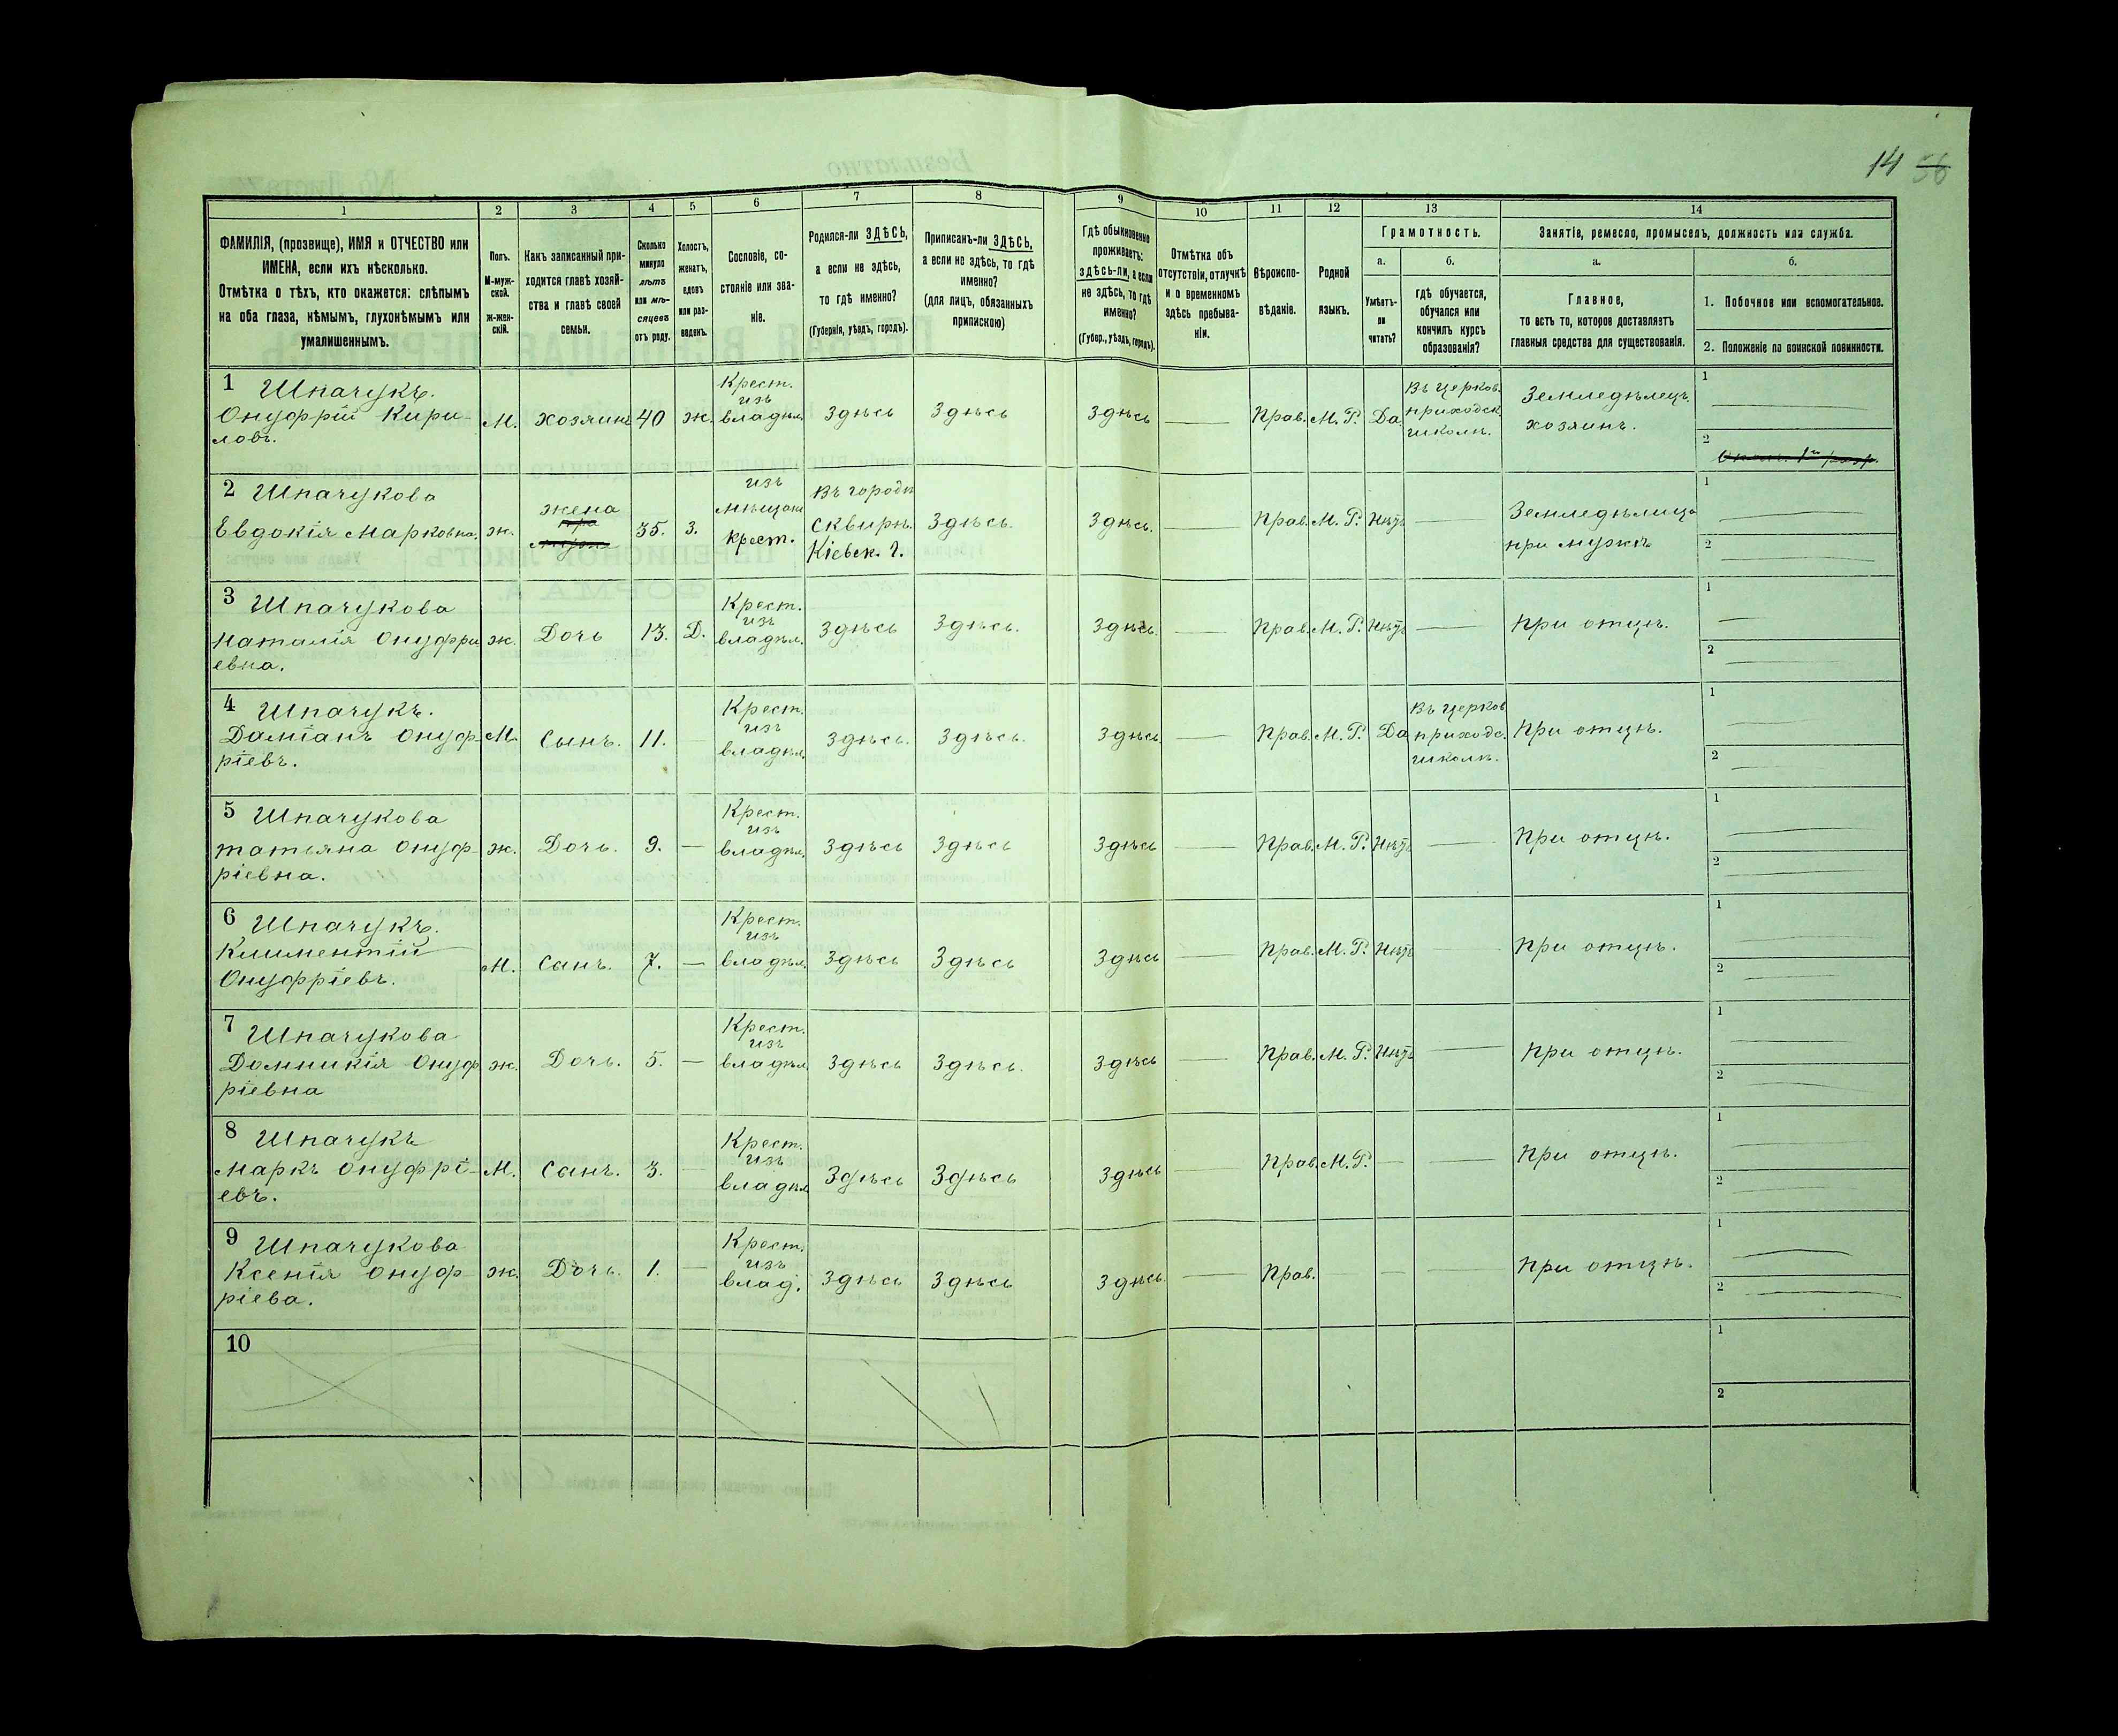 14 56
1 2 3 4 5 6 7 8 9 10 11 12 13 14
ФАМИЛІЯ, (прозвище), ИМЯ и ОТЧЕСТВО или
ИМЕНА, если ихъ нѣсколько.
Отмѣтка о тѣхъ, кто окажется: слѣпымъ
на оба глаза, нѣмымъ, глухонѣмымъ или
умалишеннымъ.
Полъ.
М-муж-
ской.
ж-жен-
скій.
Какъ записанный при-
ходится главѣ хозяй-
ства и главѣ своей
семьи.
Сколько
минуло
лѣтъ
или мѣ-
сяцевъ
отъ роду.
Холостъ,
женатъ,
вдовъ
или раз-
веденъ.
Сословіе, со-
стояніе или зва-
ніе.
Родился-ли ЗДѢСЬ,
а если не здѣсь,
то гдѣ именно?
(Губернія, уѣздъ, городъ).
Приписанъ-ли ЗДѢСЬ,
а если не здѣсь, то гдѣ
именно?
(для лицъ, обязанныхъ
припискою)
Гдѣ обыкновенно
проживаетъ:
здѣсь-ли, а если
не здѣсь, то гдѣ
именно?
(Губер., уѣздъ, городъ).
Отмѣтка объ
отсутствіи, отлучкѣ
и о временномъ
здѣсь пребыва-
ніи.
Вѣроиспо-
вѣданіе.
Родной
языкъ.
Грамотность.
а.
Умѣетъ-
ли
читать?
б.
гдѣ обучается,
обучался или
кончилъ курсъ
образованія?
Занятіе, ремесло, промыселъ, должность или служба.
а.
Главное,
то есть то, которое доставляетъ
главныя средства для существованія.
б.
1. Побочное или вспомогательное.
2. Положеніе по воинской повинности.
1 Шпачукъ.
Онуфрій Кири-
ловъ.
М.
хозяинъ
40
ж.
Крест.
изъ
владѣл.
Здѣсь
Здѣсь
Здѣсь
Прав.
М. Р.
Да.
Въ церков.
приходск.
школѣ.
Земледѣлецъ
хозяинъ.
1
2
2 Шпачукова
Евдокія Марковна.
ж.
жена
при
мужѣ
35.
З.
изъ
мѣщанъ
крест.
Въ городѣ
Сквирѣ.
Кіевск. г.
Здѣсь.
Здѣсь.
Прав.
М. Р.
Нѣтъ
Земледѣлица
при мужѣ
1
2
3 Шпачукова
Наталія Онуфри
евна.
ж.
Дочь
13.
Д.
Крест.
изъ
владѣл.
Здѣсь
Здѣсь.
Здѣсь.
Прав.
М. Р.
Нѣтъ
При отцѣ.
1
2
4 Шпачукъ.
Даміанъ Онуф
ріевъ.
М.
Сынъ.
11.
Крест.
изъ
владѣл.
Здѣсь.
Здѣсь.
Здѣсь
Прав.
М. Р.
Да
Въ церков
приходс.
школѣ.
При отцѣ.
1
2
5 Шпачукова
татьяна Онуф
ріевна.
ж.
Дочь.
9.
Крест.
изъ
владѣл.
Здѣсь
Здѣсь
Здѣсь
Прав.
М. Р.
Нѣтъ
При отцѣ.
1
2
6 Шпачукъ.
Климентій
Онуфріевъ.
М.
Сынъ.
7.
Крест.
изъ
владѣл.
Здѣсь
Здѣсь
Здѣсь
Прав.
М. Р.
Нѣтъ
При отцѣ.
1
2
7 Шпачукова
Домникія Онуф
ріевна
ж.
Дочь.
5.
Крест.
изъ
владѣл
Здѣсь
Здѣсь.
Здѣсь
Прав.
М. Р.
Нѣтъ
При отцѣ.
1
2
8 Шпачукъ
Маркъ Онуфрі-
евъ.
М.
Сынъ.
3.
Крест.
изъ
владѣл
Здѣсь
Здѣсь
Здѣсь
Прав.
М. Р.
При отцѣ.
1
2
9 Шпачукова
Ксенія Онуф
ріева.
ж.
Дочь.
1.
Крест.
изъ
влад.
Здѣсь
Здѣсь
Здѣсь.
Прав.
При отцѣ.
1
2
10
1
2